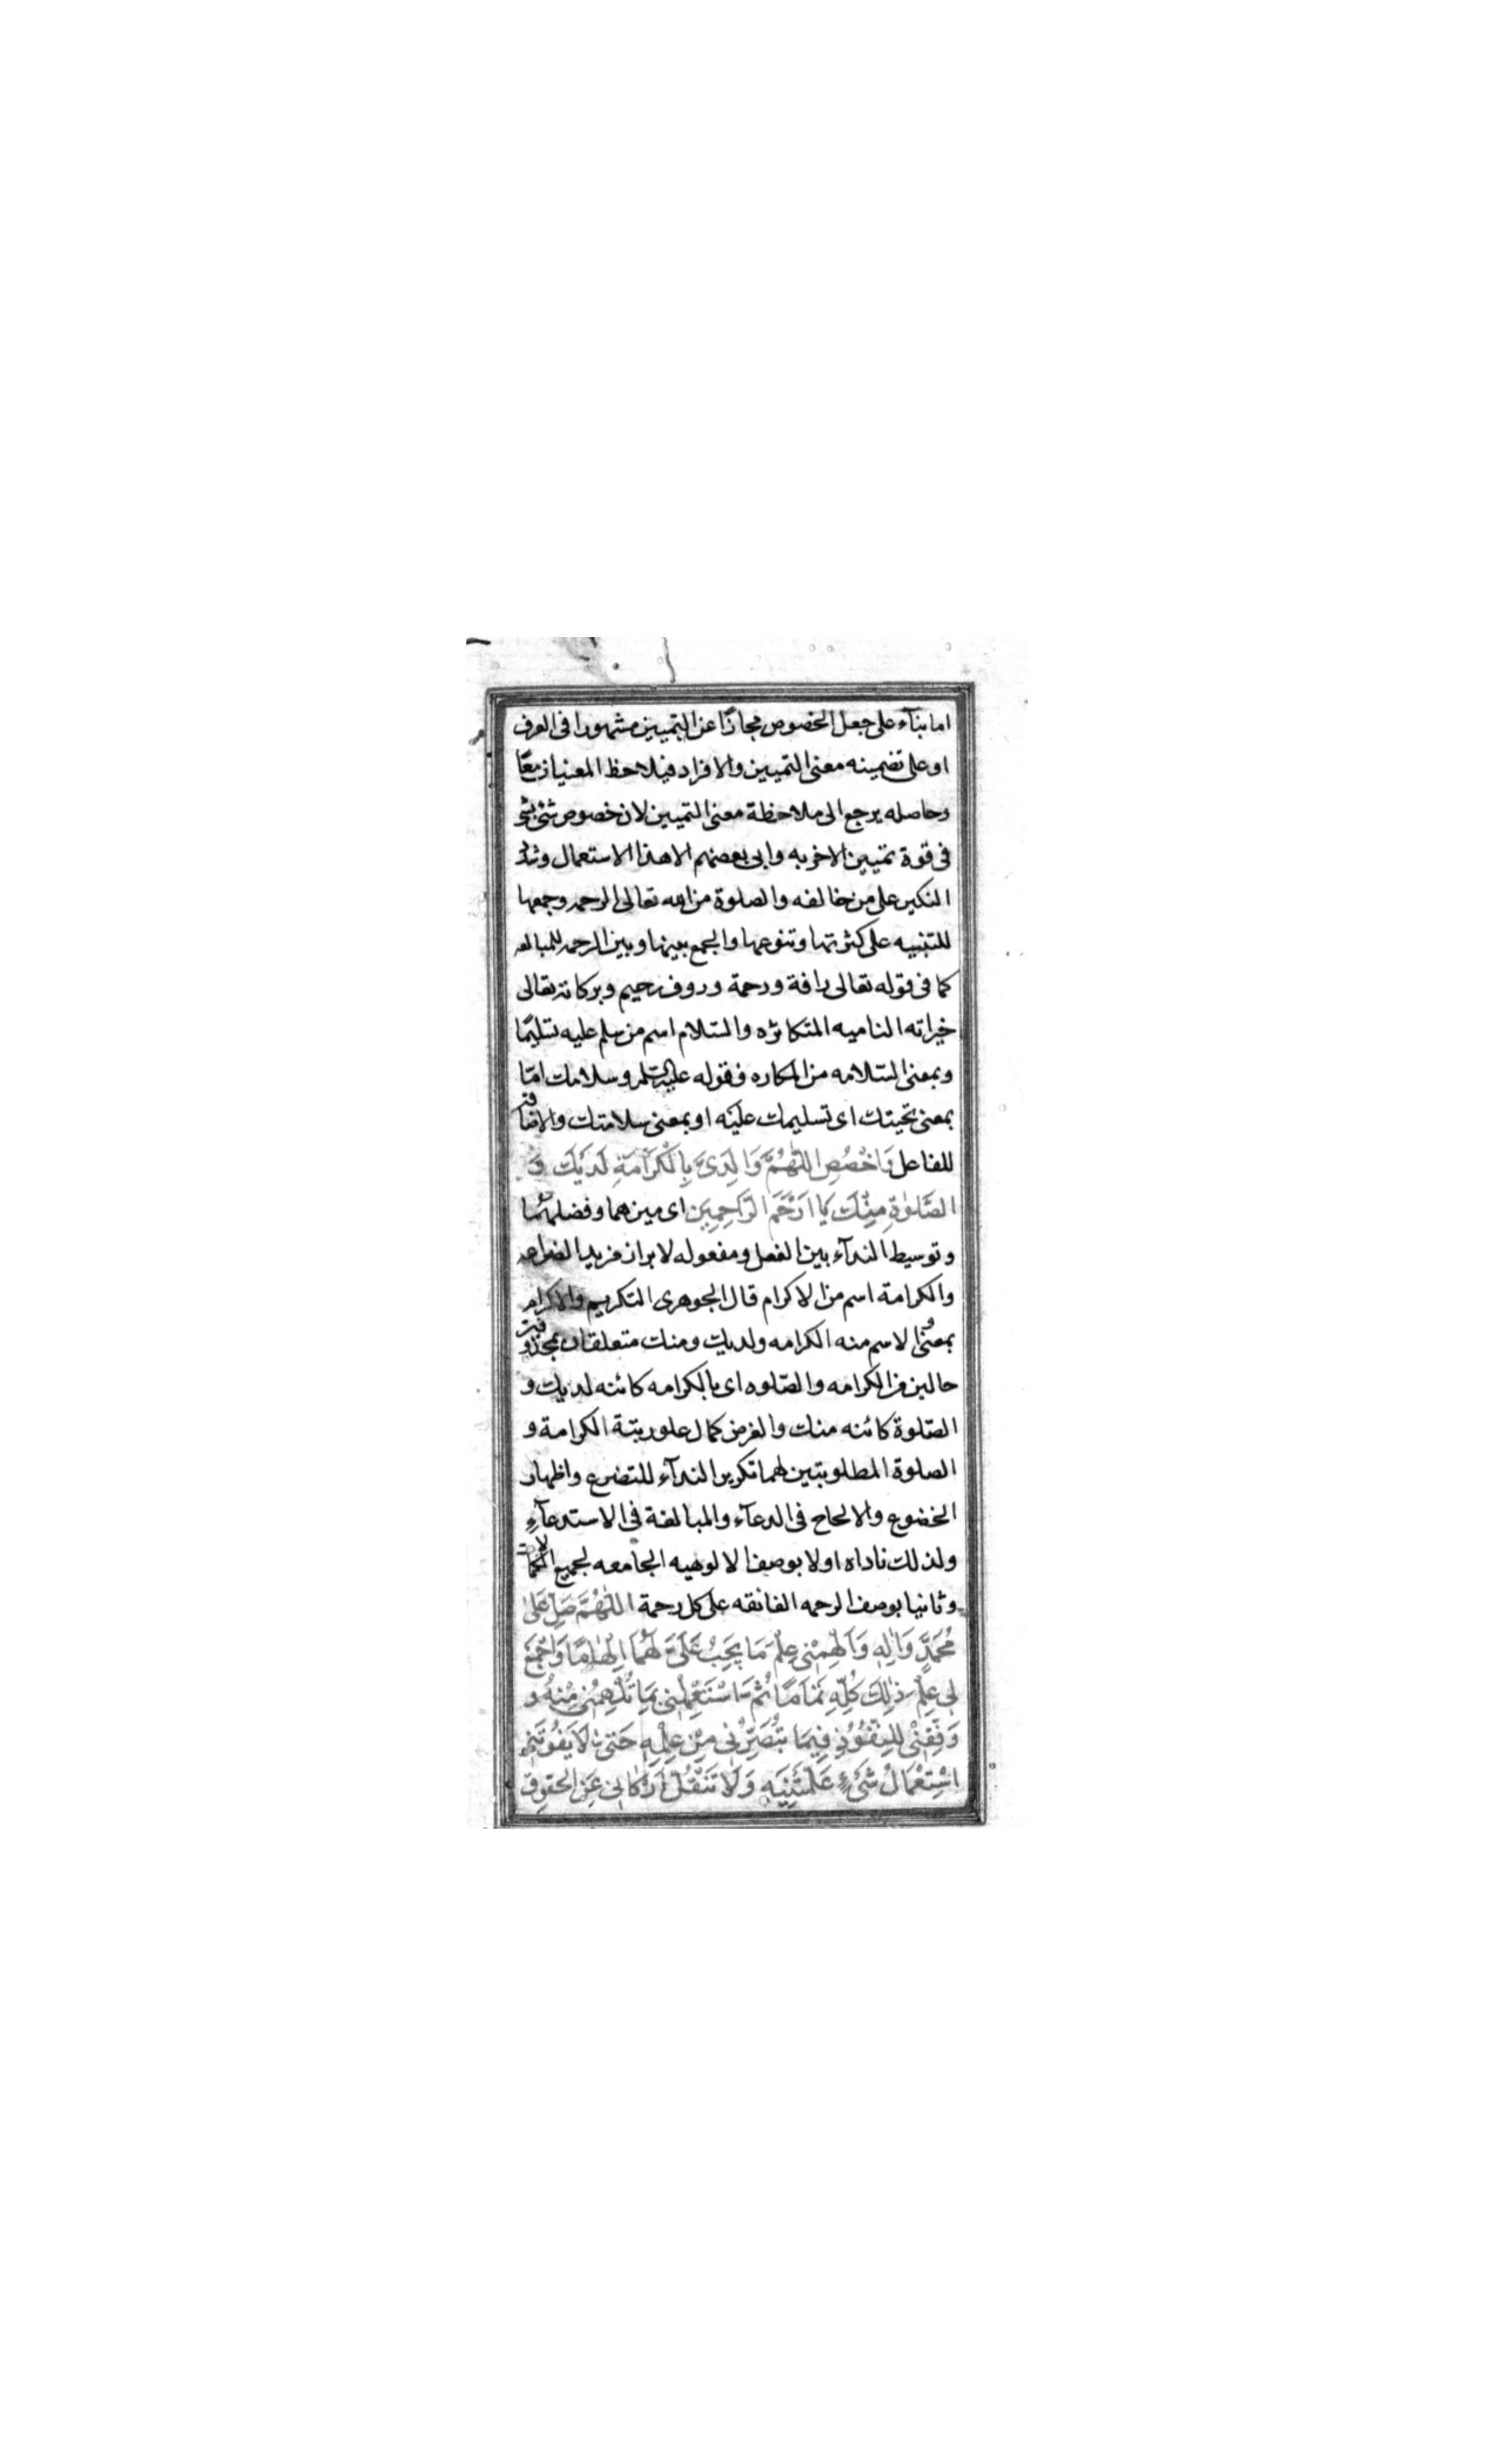 اما بناء على جعل الخصوص مجازا عن التمييز مشهورا فى العرف
او على تضمينه معنى التمييز والافراد فيلاحظ المعنيان معًا
وحاصله يرجع الى ملاحظة معنى التمييز لان خصوص شئ بشئ
فى قوة تمييز الاخر به وابى بعضهم الا هذا الاستعمال وشدد
النكير على من خالفه والصلوة من الله تعالى الرحمه وجمعها
للتنبيه على كثرتها وتنوعها والجمع بينها وبين الرحمه للمبالغه
كما فى قوله تعالى رافة ورحمة وروف رحيم وبركاته تعالى
خيراته الناميه المتكاثره والسّلام اسم من سلم عليه تسليمًا
وبمعنى السّلامه من المكاره فقوله عليه السلم وسلامك امّا
بمعنى تحيتك اى تسليمك عليه او بمعنى سلامتك والاضافة
للفاعل وَاخْصُصِ اللّٰهُمَّ وَالِدَىَّ بِالْكَرَامَةِ لَدَيْكَ وَ
الصَّلٰوةِ مِنْكَ يَا اَرْحَمَ الرَّاحِمِيَن اى ميزهما وفضلهما
وتوسيط الندآء بين الفعل ومفعوله لابراز مزيد الضراعه
والكرامة اسم من الاكرام قال الجوهرى التكريم والاكرام
بمعنى والاسم منه الكرامه ولديك ومنك متعلقان بمحذوفين
حالين من الكرامه والصّلوه اى بالكرامه كائنه لديك و
الصّلوة كائنه منك والغرض كمال علو رتبة الكرامة و
الصلوة المطلوبتين لهما تكرير الندآء للتضرع واظهار
الخضوع والالحاح فى الدعآء والمبالغة فى الاستدعآء
ولذلك ناداه اولا بوصف الالوهيه الجامعه لجميع الكمالات
وثانيا بوصف الرحمه الفائقه على كل رحمة اللّٰهُمَّ صَلِّ عَلىٰ
مُحَمَّدٍ وَاٰلِهِ وَاَلْهِمْنى عِلْمَ مَا يَجِبُ عَلَىَّ لَهُمَا اِلْهَامًا وَاجْمَعْ
لى عِلْمَ ذٰلِكَ كُلِّهِ تَمَامًا ثُمَّ اسْتَعْمِلْنى بِمَا تُلْهِمُنى مِنْهُ و
وَفِّقْنى لِلنُّفُوُذِ فِيمَا تُبَصِّرُنى مِنْ عِلْمِهِ حَتىّٰ لَا يَفُوتَنى
اسْتِعْمَالُ شَىْءٍ عَلَّمْتَنِيهِ وَلَا تَثْقُلَ اَرْكَانى عَنِ الحقوق